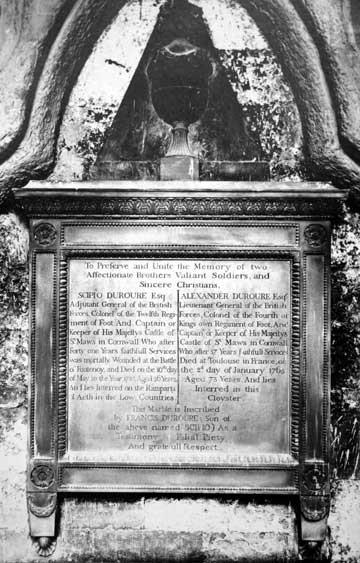 To Preserve and Unite the Memory of two
Affectionate Brothers Valiant Soldiers, and
Sincere Christians.
SCIPIO DUROURE Esq;
Adjutant General of the British
Forces, Colonel of the Twelfth Regi
ment of Foot And Captain or
Keeper of His Majestys Castle of
St Maws in Cornwall Who after
Forty one Years faithfull Services
was mortally Wounded at the Battle
of Fontenoy, and Died on the 10th day
of May in the Year 1745 Aged 56 Years,
And lies Interred on the Ramparts
of Aeth in the Low Countries
ALEXANDER DUROURE Esqr
Lieutenant General of the British
Forces, Colonel of the Fourth or
Kings own Regiment of Foot, And
Captain or Keeper of His Majestys
Castle of St Maws in Cornwall
Who after 57 Years Faithfull Services
Died at Toulouse in France, on
the 2d day of January 1765
Aged 74 Years And lies
Interred in this
Cloyster.
This Marble is Inscribed
by FRANCIS DUROURE (Son of
the above named SCIPIO) As a
Testimony of Filial Piety
And gratefull Respect